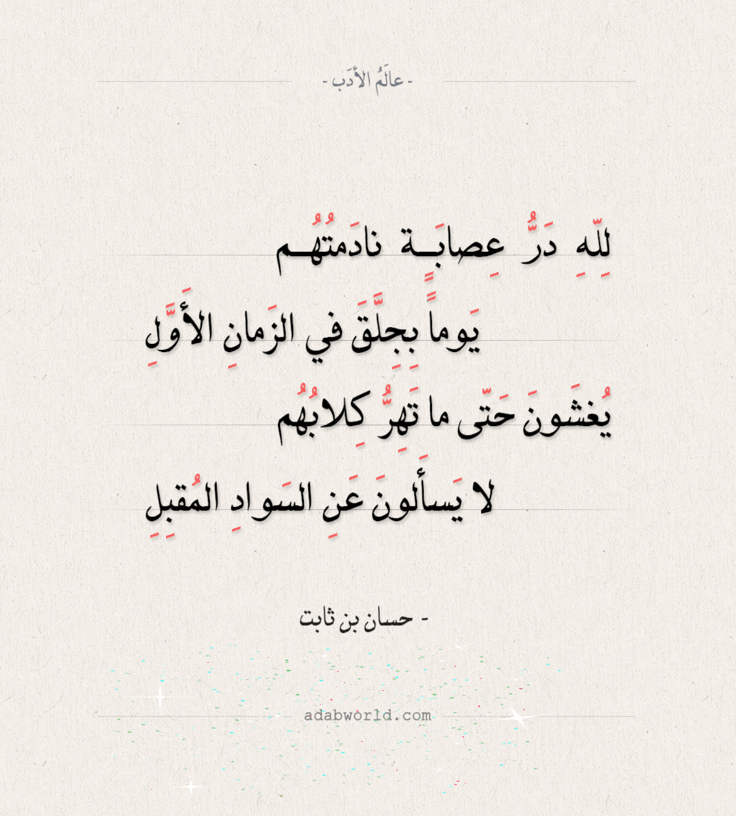 - عالَمُ الأدَب -
لِلَّهِ دَرُّ عِصابَـــةٍ نادَمتُهُـــم
يَوماً بِجِلَّقَ في الزَمانِ الأَوَّلِ
يُغشَونَ حَتّى ما تَهِرُّ كِلابُهُم
لا يَسأَلونَ عَنِ السَوادِ المُقبِلِ
- حسان بن ثابت
adabworld.com